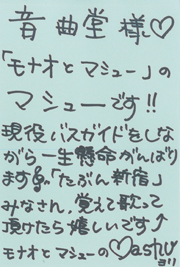 音曲堂様♡
「モナオとマシュー」の
マシューです!!
現役バスガイドをしな
がら一生懸命がんばり
ます「たぶん新宿」
みなさん、覚えて歌って
頂けたら嬉しいです↑
モナオとマシューの♡ashu
より